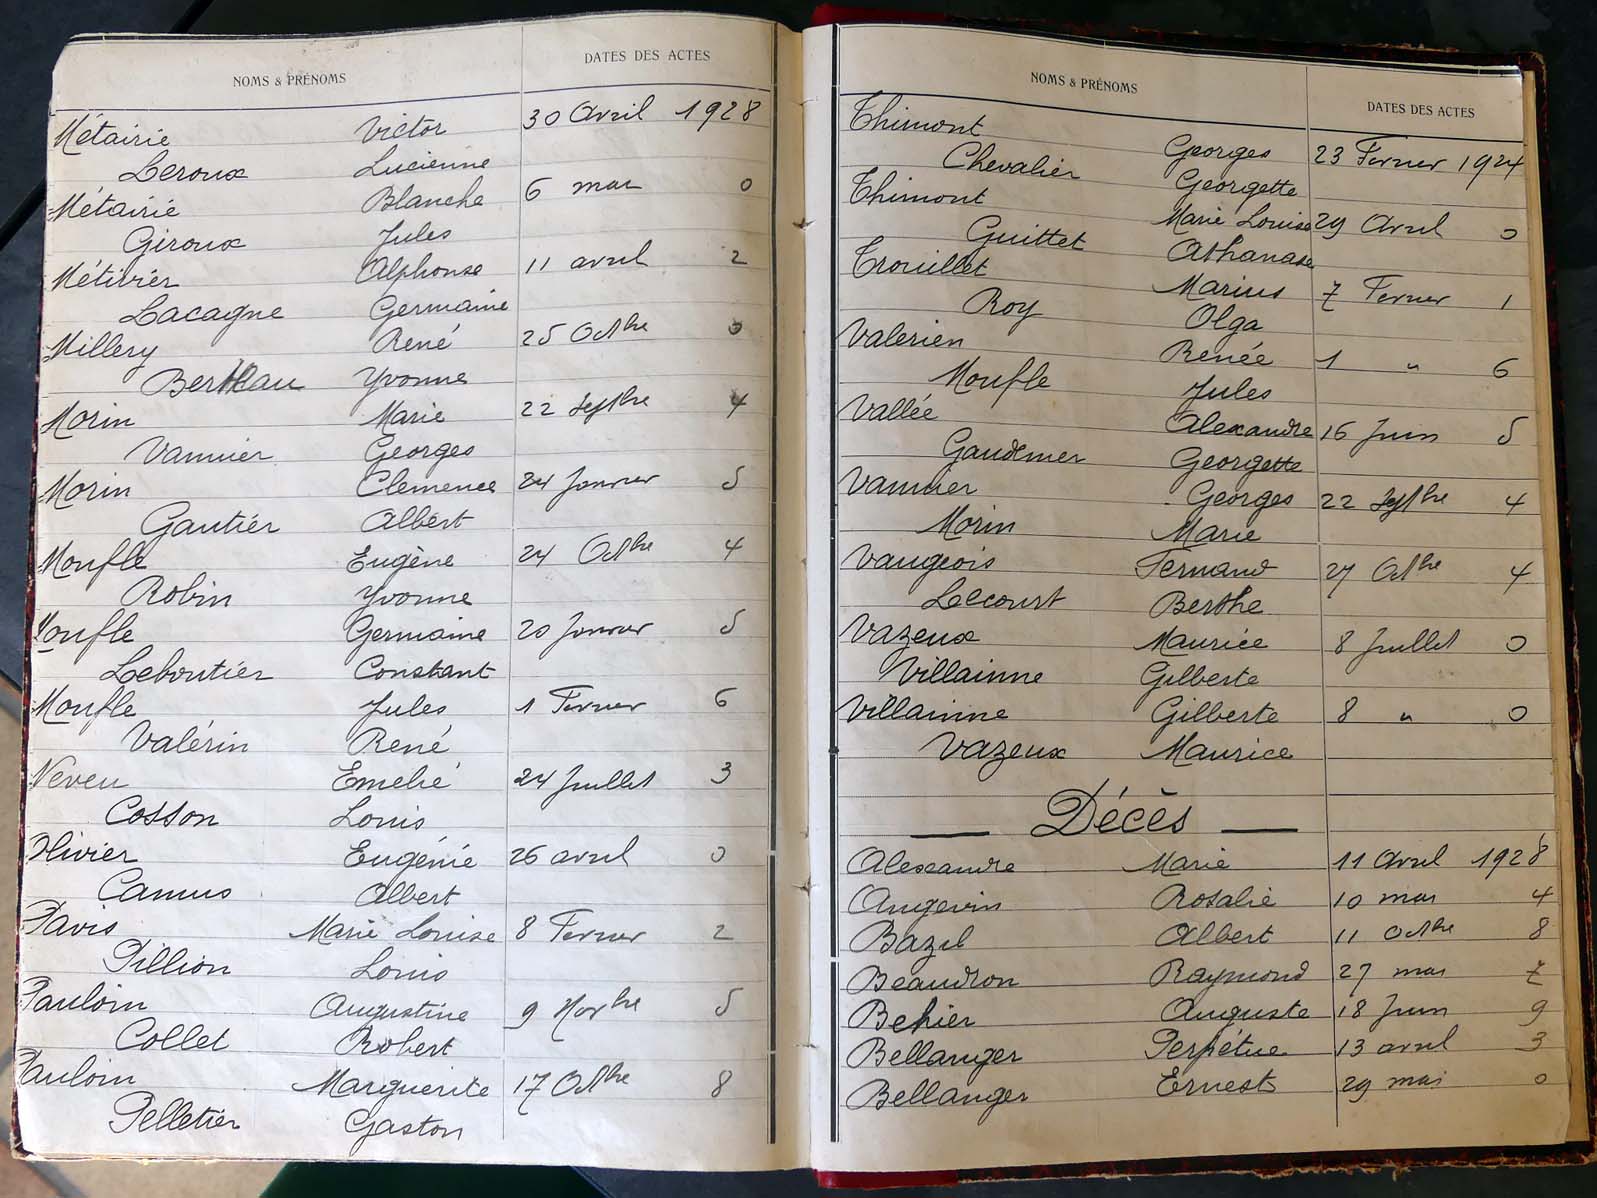 NOMS & PRÉNOMS DATES DES ACTES
Métairie Victor 30 Avril 1928
Leroux Lucienne
Métairie Blanche 6 mai 0
Giroux Jules
Métivier Alphonse 11 avril 2
Lacagne Germaine
Millery René 25 Octbre 0
Bertheau Yvonne
Morin Marie 22 Septbre 4
Vannier Georges
Morin Clemence 24 Janvier 5
Gautier Albert
Moufle Eugène 24 Octbre 4
Robin Yvonne
Moufle Germaine 20 Janvier 5
Leboutier Constant
Moufle Jules 1 Fevrier 6
Valérin René
Neveu Emelie 24 Juillet 3
Cosson Louis
Olivier Eugénie 26 avril 0
Camus Albert
Pavis Marie Louise 8 Fevrier 2
Pillion Louis
Pauloin Augustine 9 Novbre 5
Collet Robert
Pauloin Marguerite 17 Octbre 8
Pelletier Gaston
NOMS & PRÉNOMS DATES DES ACTES
Thimont Georges 23 Fevrier 1924
Chevalier Georgette
Thimont Marie Louise 29 Avril 0
Guittet Athanase
Trouillet Marius 7 Fevrier 1
Roy Olga
Valerien Renée 1 " 6
Moufle Jules
Vallée Alexandre 16 Juin 5
Gaudmer Georgette
Vannier Georges 22 Septbre 4
Morin Marie
Vaugeois Fernand 27 Octbre 4
Lecourt Berthe
Vazeux Maurice 8 Juillet 0
Villainne Gilberte
Villainne Gilberte 8 " 0
Vazeux Maurice
— Décès —
Alexandre Marie 11 Avril 1928
Angevin Rosalie 10 mai 4
Bazil Albert 11 Octbre 8
Beaudron Raymond 27 mai 7
Behier Auguste 18 Juin 9
Bellanger Perpétue 13 avril 3
Bellanger Ernest 29 mai 0